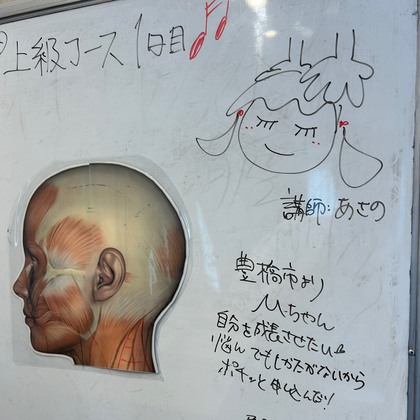 上級コース 1日目
講師:あさの
豊橋市より
Mちゃん
自分を成長させたい
悩んでもしかたがないから
ポチッと申込んだ!